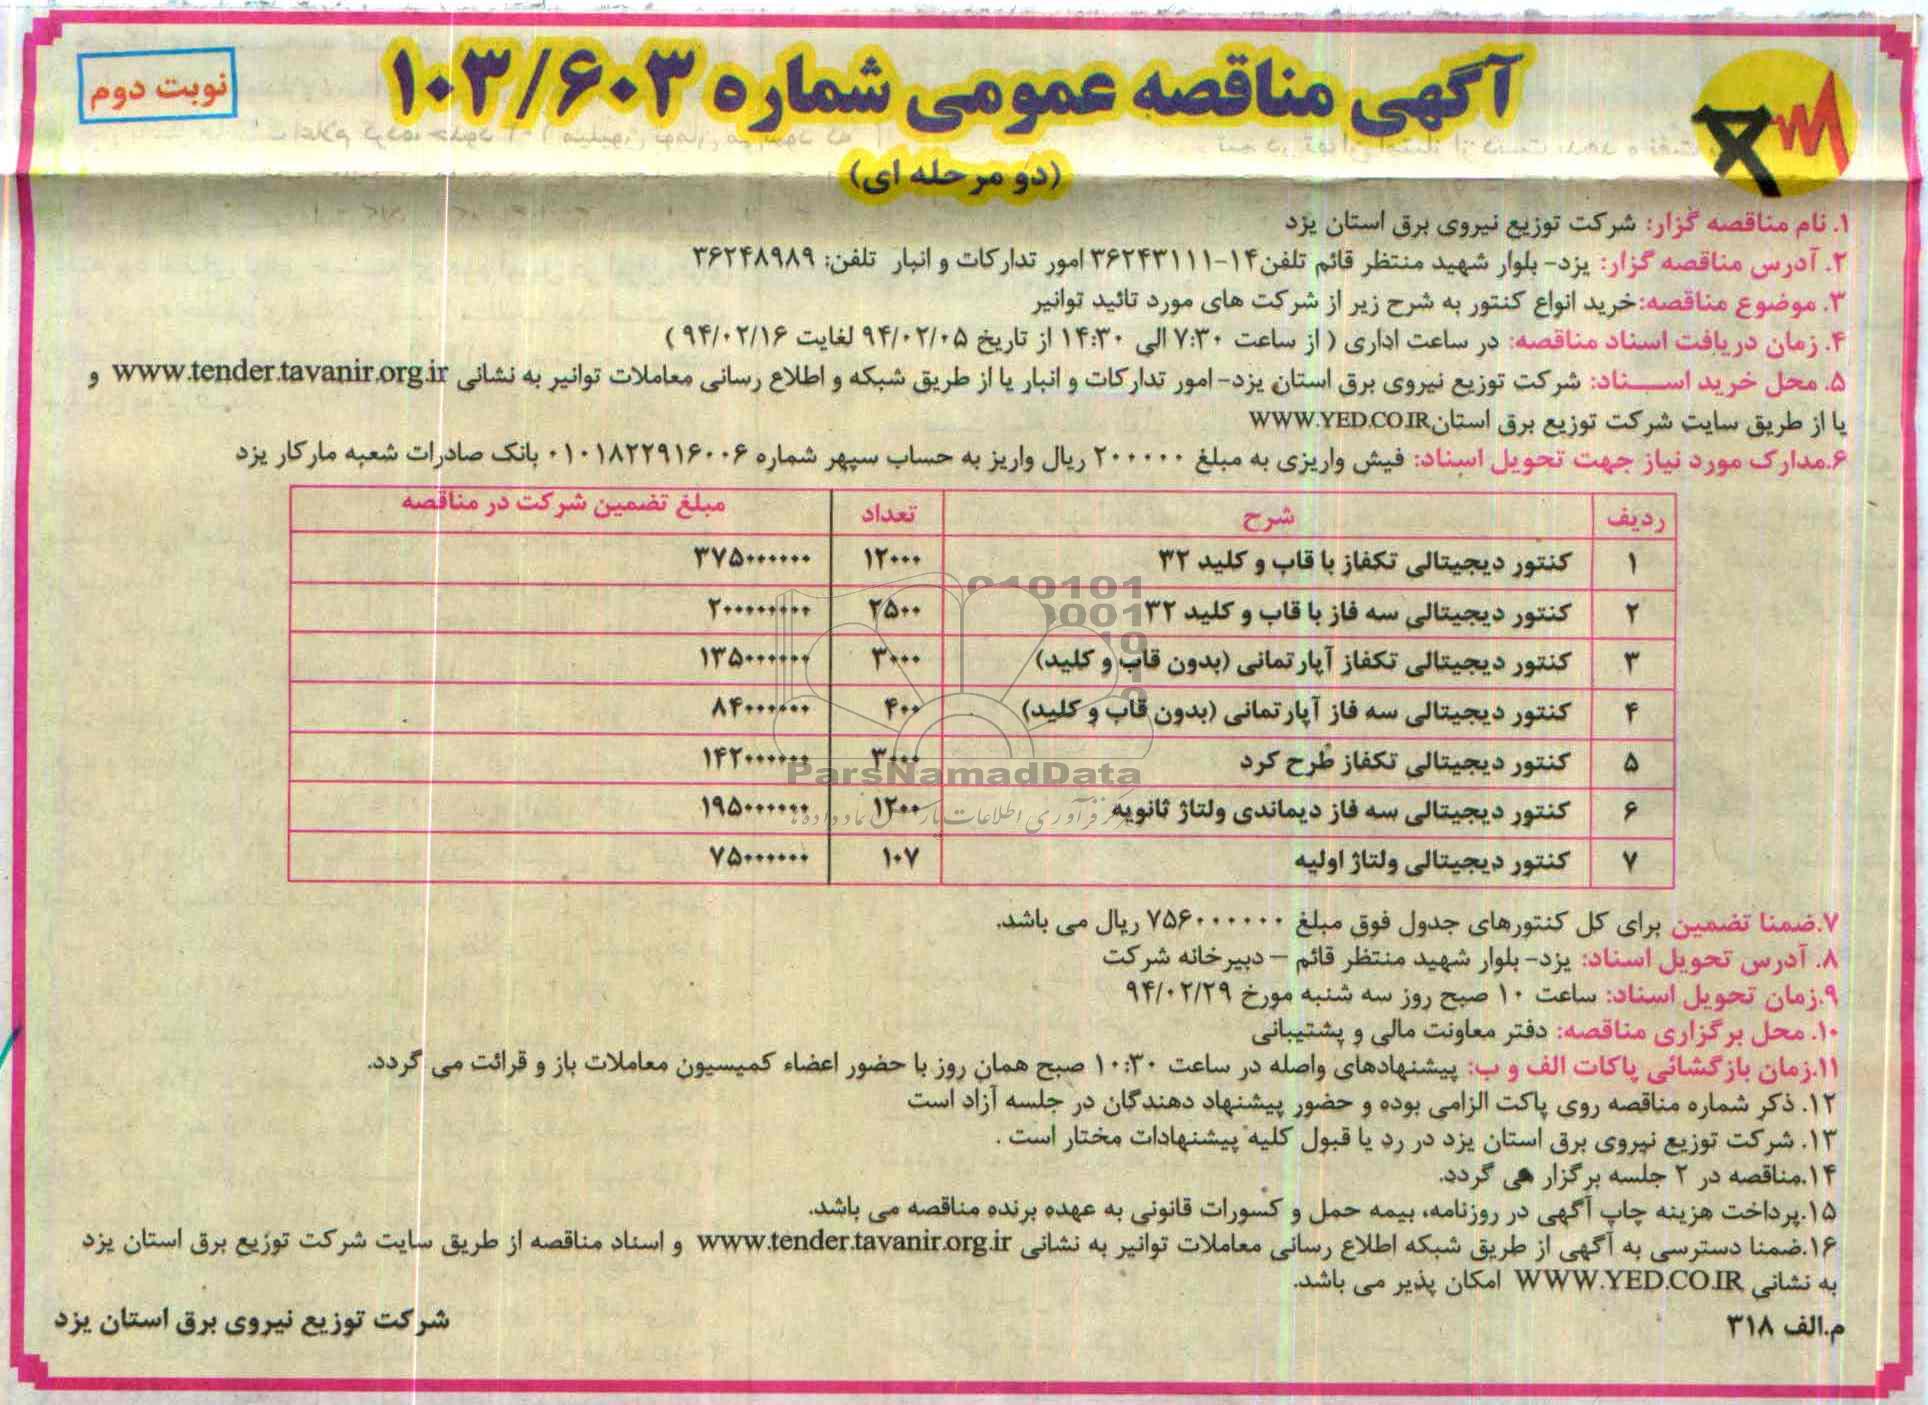 آگهی مناقصه عمومی شماره ۱۰۳/۶۰۳
نوبت دوم
(دو مرحله ای)
۱. نام مناقصه گزار: شرکت توزیع نیروی برق استان یزد
۲. آدرس مناقصه گزار: یزد- بلوار شهید منتظر قائم تلفن۱۴-۳۶۲۴۳۱۱۱ امور تدارکات و انبار تلفن: ۳۶۲۴۸۹۸۹
۳. موضوع مناقصه:خرید انواع کنتور به شرح زیر از شرکت های مورد تائید توانیر
۴. زمان دریافت اسناد مناقصه: در ساعت اداری ( از ساعت ۷:۳۰ الی ۱۴:۳۰ از تاریخ ۹۴/۰۲/۰۵ لغایت ۹۴/۰۲/۱۶ )
۵. محل خرید اسـناد: شرکت توزیع نیروی برق استان یزد- امور تدارکات و انبار یا از طریق شبکه و اطلاع رسانی معاملات توانیر به نشانی www.tender.tavanir.org.ir و
یا از طریق سایت شرکت توزیع برق استانWWW.YED.CO.IR
۶.مدارک مورد نیاز جهت تحویل اسناد: فیش واریزی به مبلغ ۲۰۰۰۰۰ ریال واریز به حساب سپهر شماره ۰۱۰۱۸۲۲۹۱۶۰۰۶ بانک صادرات شعبه مارکار یزد
ردیف شرح تعداد مبلغ تضمین شرکت در مناقصه
۱ کنتور دیجیتالی تکفاز با قاب و کلید ۳۲ ۱۲۰۰۰ ۳۷۵۰۰۰۰۰۰۰
۲ کنتور دیجیتالی سه فاز با قاب و کلید ۳۲ ۲۵۰۰ ۲۰۰۰۰۰۰۰۰۰
۳ کنتور دیجیتالی تکفاز آپارتمانی (بدون قاب و کلید) ۳۰۰۰ ۱۳۵۰۰۰۰۰۰
۴ کنتور دیجیتالی سه فاز آپارتمانی (بدون قاب و کلید) ۴۰۰ ۸۴۰۰۰۰۰۰
۵ کنتور دیجیتالی تکفاز طرح کرد ۳۰۰۰ ۱۴۲۰۰۰۰۰۰۰
۶ کنتور دیجیتالی سه فاز دیماندی ولتاژ ثانویه ۱۲۰۰ ۱۹۵۰۰۰۰۰۰۰
۷ کنتور دیجیتالی ولتاژ اولیه ۱۰۷ ۷۵۰۰۰۰۰۰
ParsNamadData
۷.ضمنا تضمین برای کل کنتورهای جدول فوق مبلغ ۷۵۶۰۰۰۰۰۰۰ ریال می باشد.
۸. آدرس تحویل اسناد: یزد- بلوار شهید منتظر قائم – دبیرخانه شرکت
۹.زمان تحویل اسناد: ساعت ۱۰ صبح روز سه شنبه مورخ ۹۴/۰۲/۲۹
۱۰. محل برگزاری مناقصه: دفتر معاونت مالی و پشتیبانی
۱۱.زمان بازگشائی پاکات الف و ب: پیشنهادهای واصله در ساعت ۱۰:۳۰ صبح همان روز با حضور اعضاء کمیسیون معاملات باز و قرائت می گردد.
۱۲. ذکر شماره مناقصه روی پاکت الزامی بوده و حضور پیشنهاد دهندگان در جلسه آزاد است
۱۳. شرکت توزیع نیروی برق استان یزد در رد یا قبول کلیه پیشنهادات مختار است .
۱۴.مناقصه در ۲ جلسه برگزار می گردد.
۱۵.پرداخت هزینه چاپ آگهی در روزنامه، بیمه حمل و کسورات قانونی به عهده برنده مناقصه می باشد.
۱۶.ضمنا دسترسی به آگهی از طریق شبکه اطلاع رسانی معاملات توانیر به نشانی www.tender.tavanir.org.ir و اسناد مناقصه از طریق سایت شرکت توزیع برق استان یزد
به نشانی WWW.YED.CO.IR امکان پذیر می باشد.
م.الف ۳۱۸
شرکت توزیع نیروی برق استان یزد